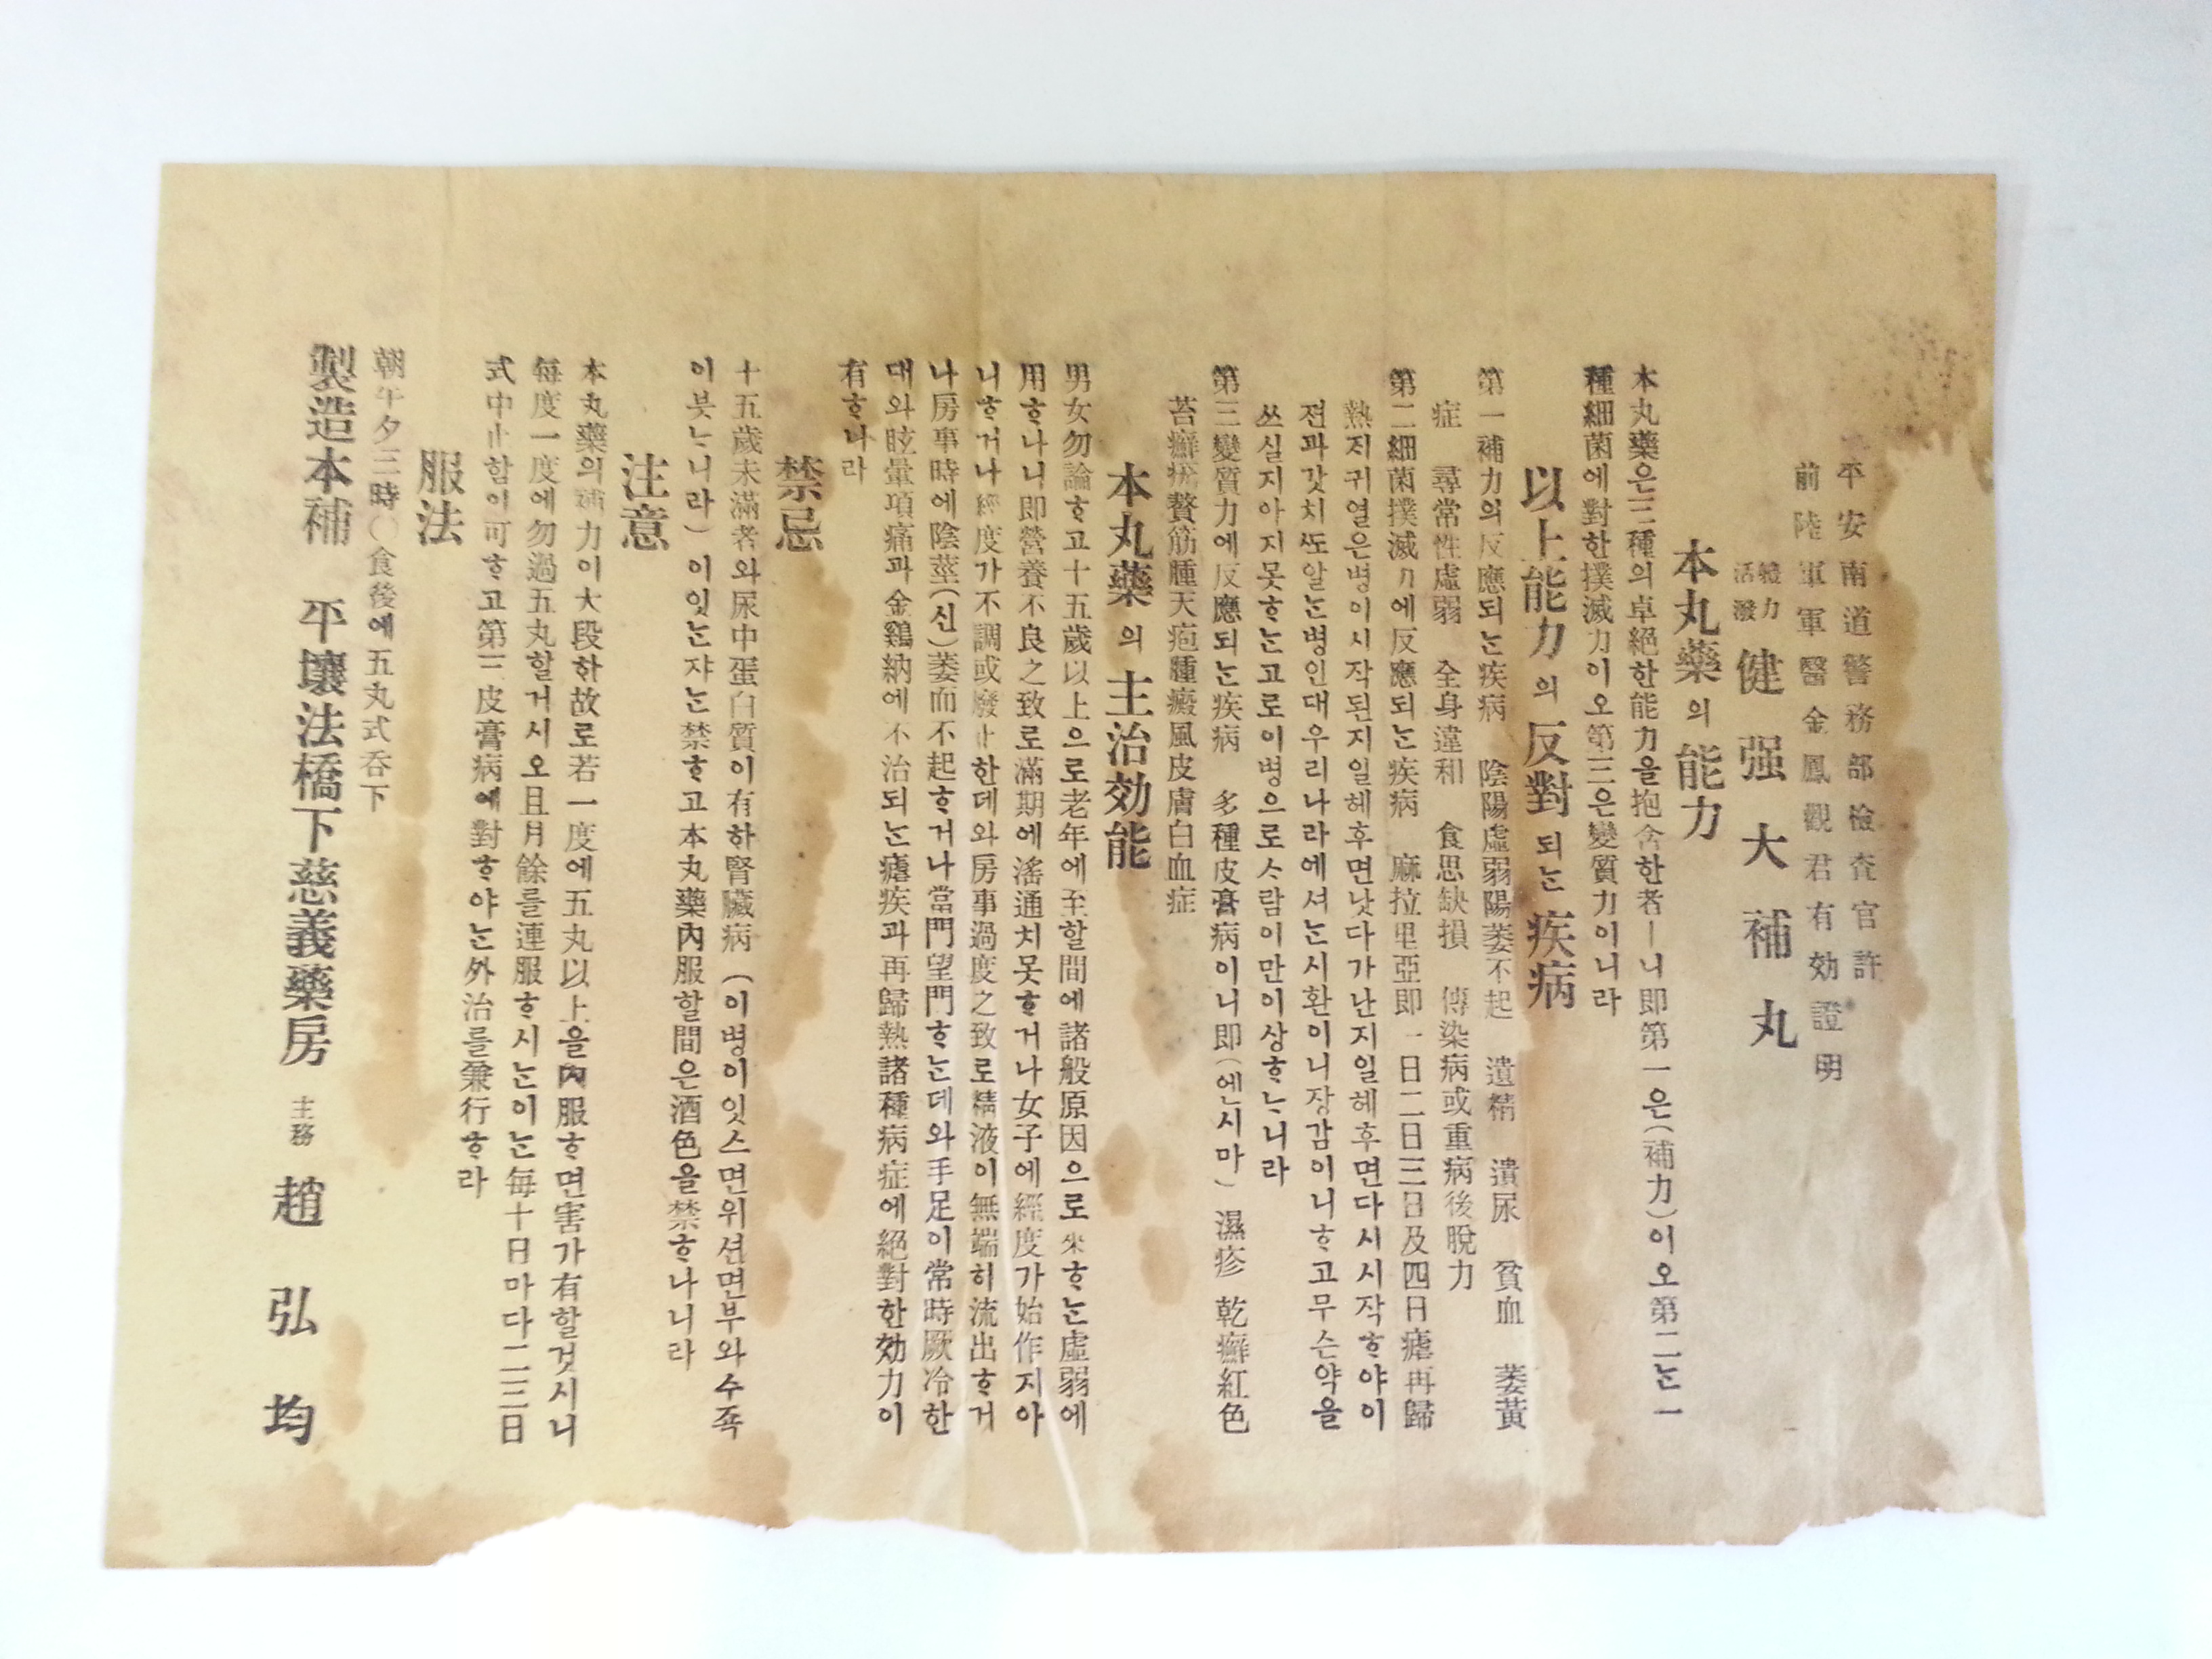 平安南道警務部檢査官許
前陸軍軍醫金鳳觀君有効證明
體力
活潑
健强大補丸
本丸藥의能力
本丸藥은三種의卓絕한能力을抱含한者ㅣ니即第一은(補力)이오第二ᄂᆞᆫ一
種細菌에對한撲滅力이오第三은變質力이니라
以上能力의反對되ᄂᆞᆫ疾病
第一補力의反應되ᄂᆞᆫ疾病 陰陽虛弱陽萎不起 遺精 遺尿 貧血 萎黃
症 尋常性虛弱 全身違和 食思缺損 傳染病或重病後脫力
第二細菌撲滅力에反應되ᄂᆞᆫ疾病 麻拉里亞即一日二日三日及四日瘧再歸
熱지귀열은병이시작된지일헤후면낫다가난지일헤후면다시시작ᄒᆞ야이
젼과갓치ᄯᅩ알ᄂᆞᆫ병인대우리나라에셔ᄂᆞᆫ시환이니장감이니ᄒᆞ고무슨약을
쓰실지아지못ᄒᆞᄂᆞᆫ고로이병으로ᄉᆞ람이만이상ᄒᆞᄂᆞ니라
第三變質力에反應되ᄂᆞᆫ疾病 多種皮膏病이니即(엔시마) 濕疹 乾癬紅色
苔癬疣贅筋腫天疱腫癜風皮膚白血症
本丸藥의主治効能
男女勿論ᄒᆞ고十五歲以上으로老年에至할間에諸般原因으로來ᄒᆞᄂᆞᆫ虛弱에
用ᄒᆞ나니即營養不良之致로滿期에滛通치못ᄒᆞ거나女子에經度가始作지아
니ᄒᆞ거나經度가不調或廢止한데와房事過度之致로精液이無端히流出ᄒᆞ거
나房事時에陰莖(신)萎而不起ᄒᆞ거나當門望門ᄒᆞᄂᆞᆫ데와手足이常時厥冷한
대와眩暈項痛과金鷄納에不治되ᄂᆞᆫ瘧疾과再歸熱諸種病症에絕對한効力이
有ᄒᆞ니라
禁忌
十五歲未滿者와尿中蛋白質이有하腎臟病(이병이잇스면위션면부와수죡
이붓ᄂᆞ니라)이잇ᄂᆞᆫ쟈ᄂᆞᆫ禁ᄒᆞ고本丸藥內服할間은酒色을禁ᄒᆞ나니라
注意
本丸藥의補力이大段한故로若一度에五丸以上을內服ᄒᆞ면害가有할것시니
每度一度에勿過五丸할거시오且月餘를連服ᄒᆞ시ᄂᆞᆫ이ᄂᆞᆫ每十日마다二三日
式中止함이可ᄒᆞ고第三皮膏病에對ᄒᆞ야ᄂᆞᆫ外治를兼行ᄒᆞ라
服法
朝午夕三時〇食後에五丸式呑下
製造本補 平壤法橋下慈義藥房 主務 趙弘均